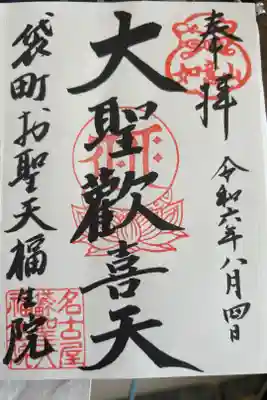 奉拝
令和六年八月四日
大聖歡喜天
袋町お聖天福生院
名古屋